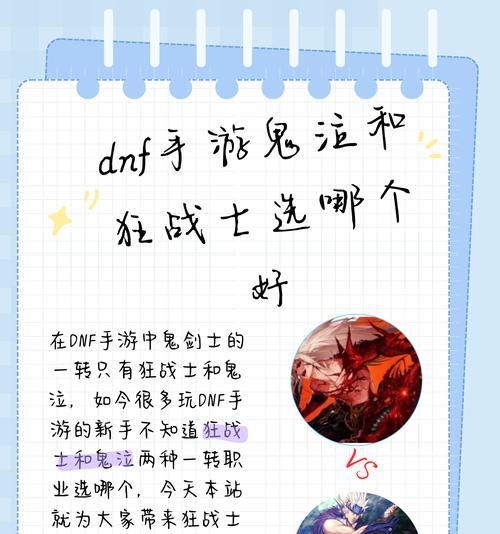 dnf手游鬼泣和
狂战士选哪个
好
在DNF手游中鬼剑士的
一转只有狂战士和鬼
泣，如今很多玩DNF手
游的新手不知道狂战
士和鬼泣两种一转职
业选哪个，今天本站
就为大家带来狂战士
VS